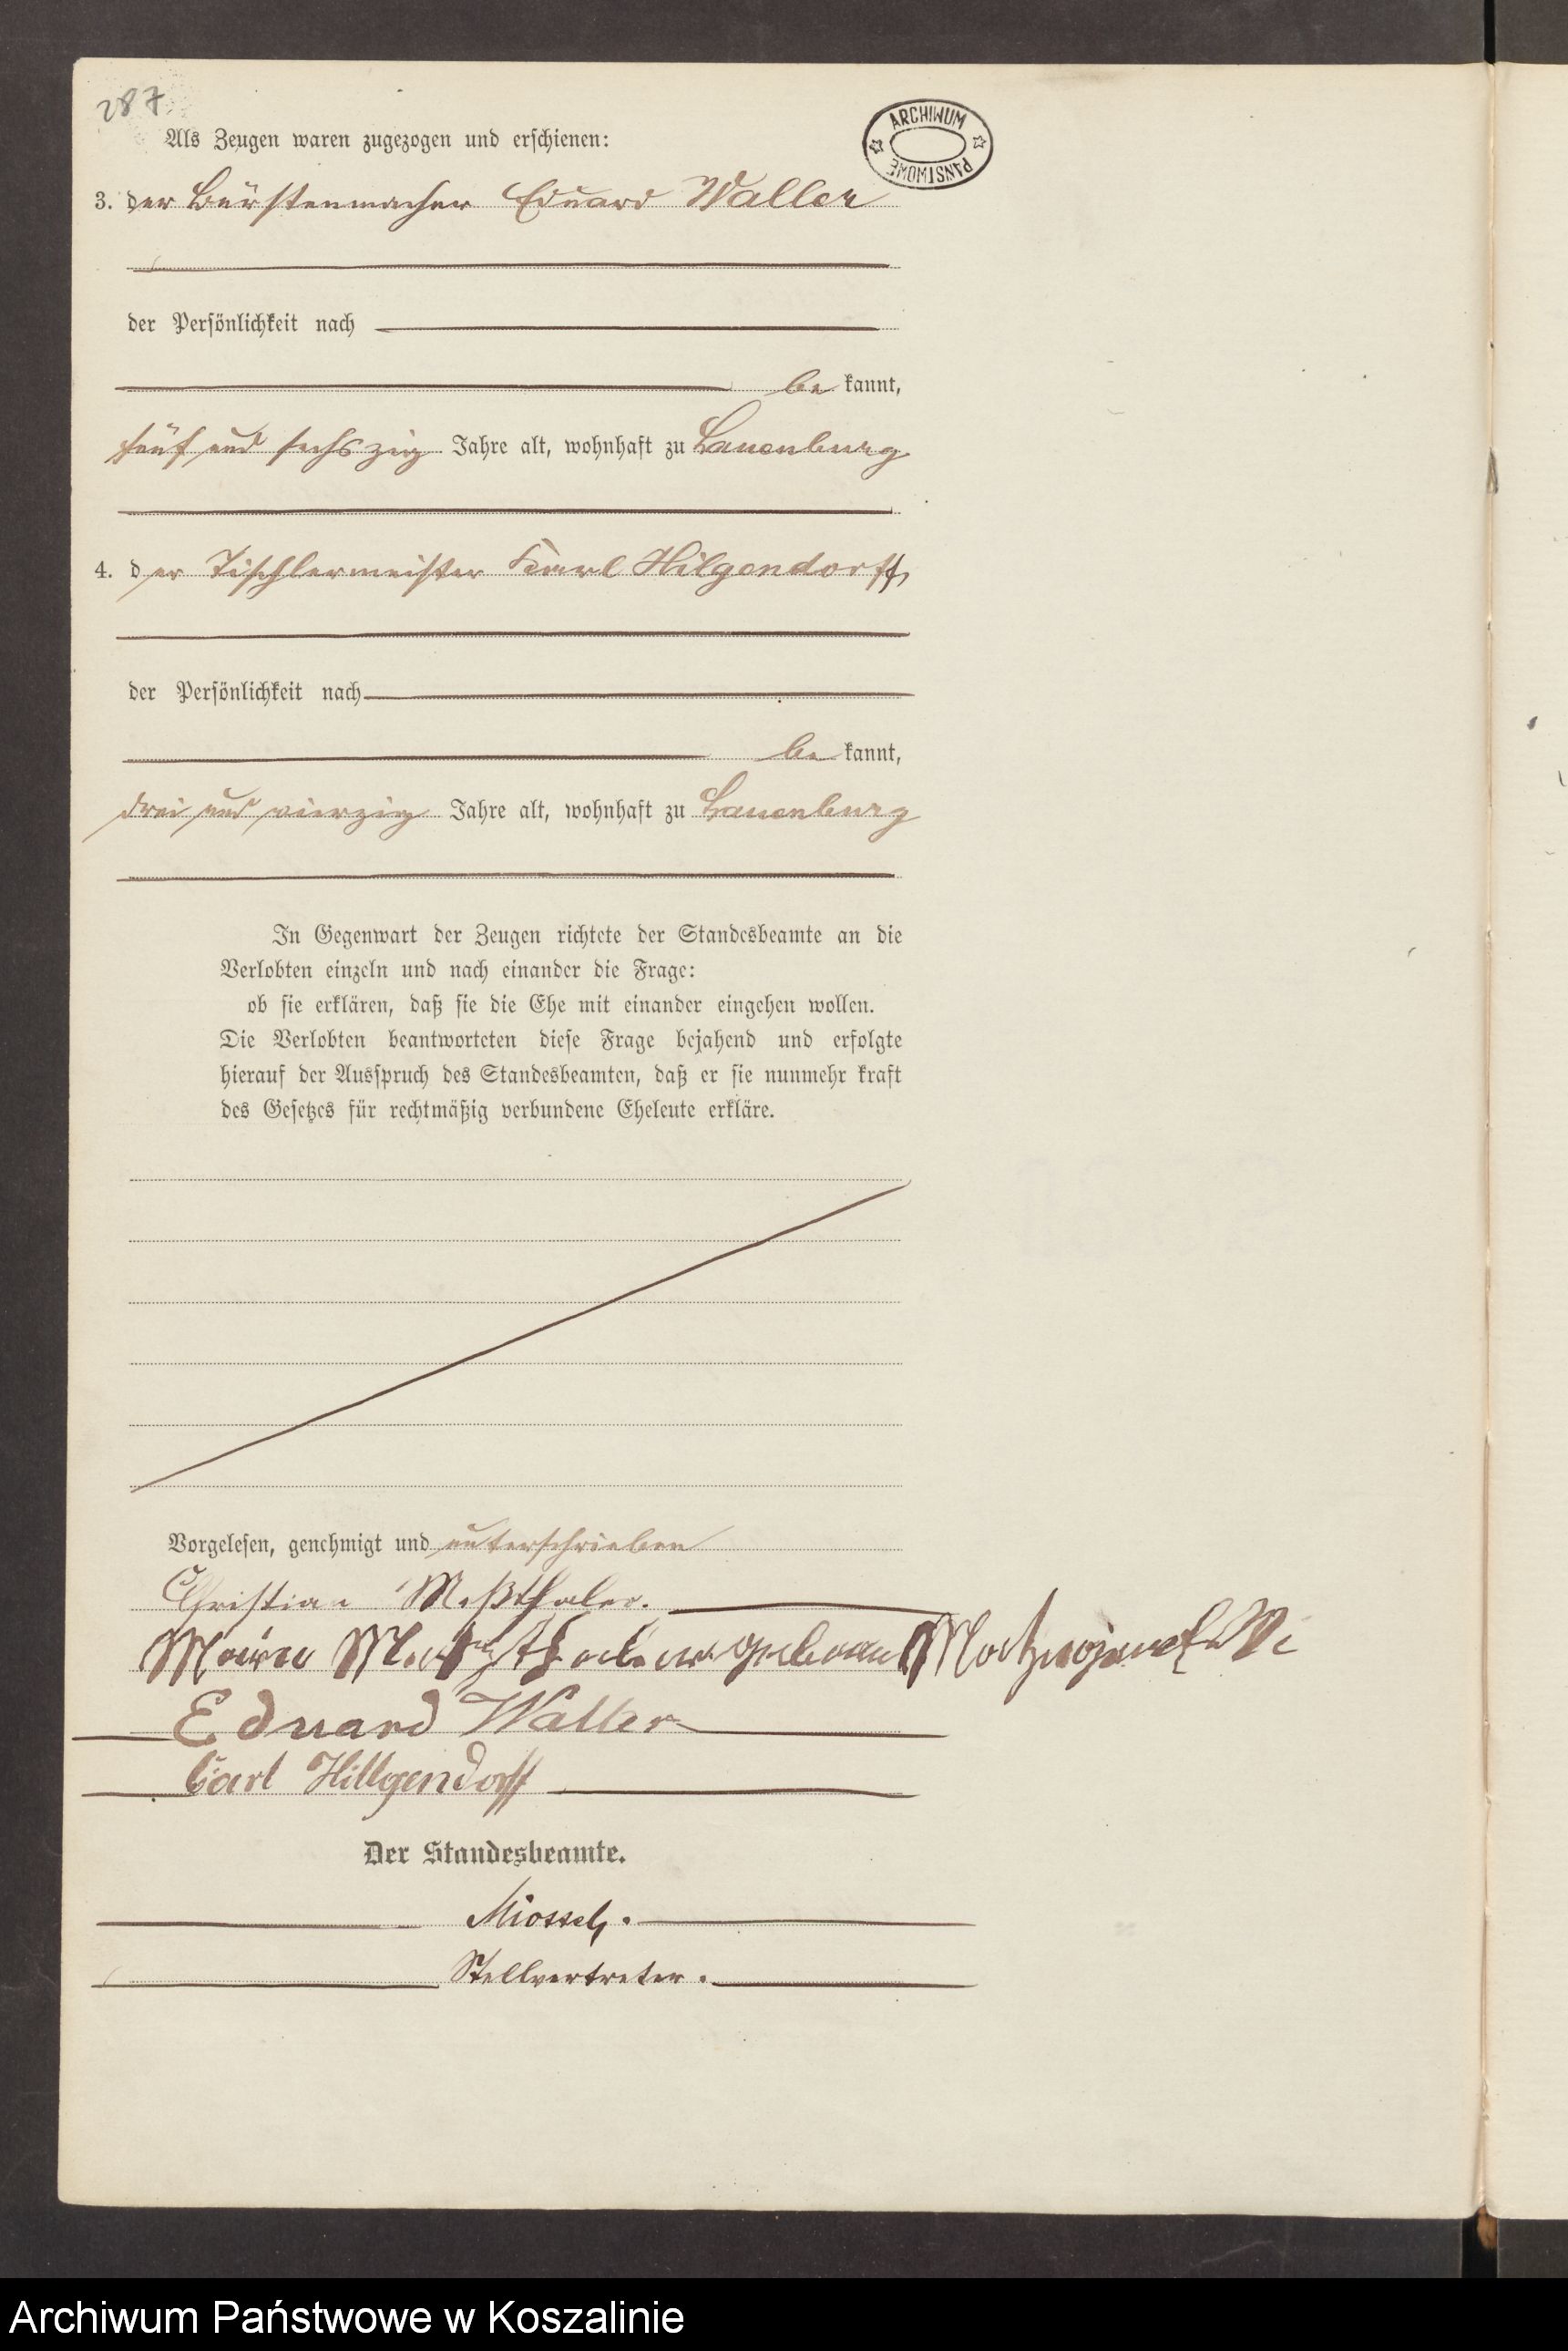 287
ARCHIWUM PAŃSTWOWE
Als Zeugen waren zugezogen und erschienen:
3. der Bürstenmacher Eduard Waller
der Persönlichkeit nach
be kannt,
fünf und sechszig Jahre alt, wohnhaft zu Lauenburg
4. der Tischlermeister Karl Hilgendorff,
der Persönlichkeit nach
be kannt,
drei und vierzig Jahre alt, wohnhaft zu Lauenburg
In Gegenwart der Zeugen richtete der Standesbeamte an die
Verlobten einzeln und nach einander die Frage:
ob sie erklären, daß sie die Ehe mit einander eingehen wollen.
Die Verlobten beantworteten diese Frage bejahend und erfolgte
hierauf der Ausspruch des Standesbeamten, daß er sie nunmehr kraft
des Gesetzes für rechtmäßig verbundene Eheleute erkläre.
Vorgelesen, genehmigt und unterschrieben
Christian Meßthaler.
geboren
Eduard Waller
Carl Hillgendorff
Der Standesbeamte.
Stellvertreter.
Archiwum Państwowe w Koszalinie